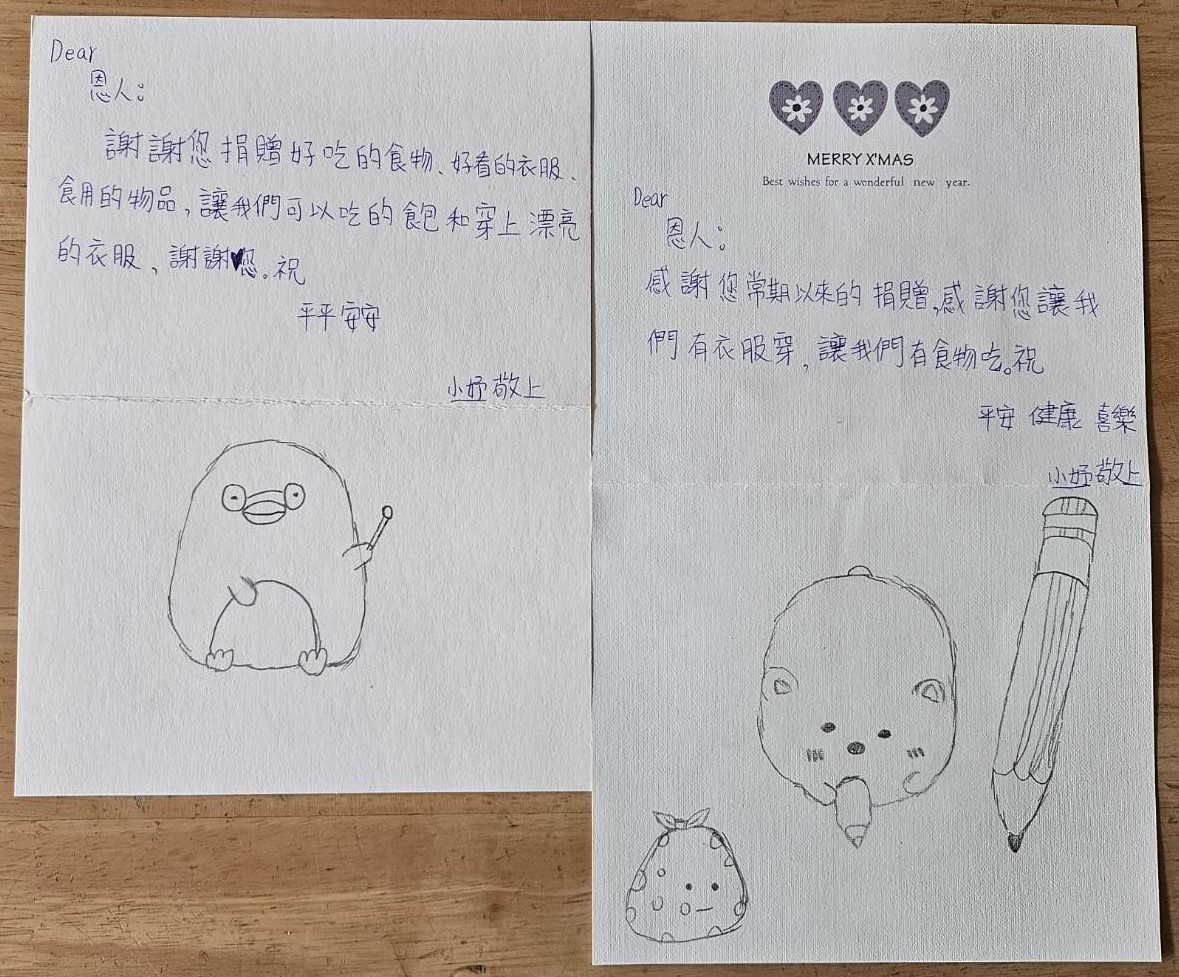 Dear
恩人：
謝謝您捐贈好吃的食物、好看的衣服、
食用的物品，讓我們可以吃的飽和穿上漂亮
的衣服，謝謝您。祝
平平安安
小妤敬上
MERRY X'MAS
Best wishes for a wonderful new year.
Dear
恩人：
感謝您常期以來的捐贈，感謝您讓我
們有衣服穿，讓我們有食物吃。祝
平安 健康 喜樂
小妤敬上